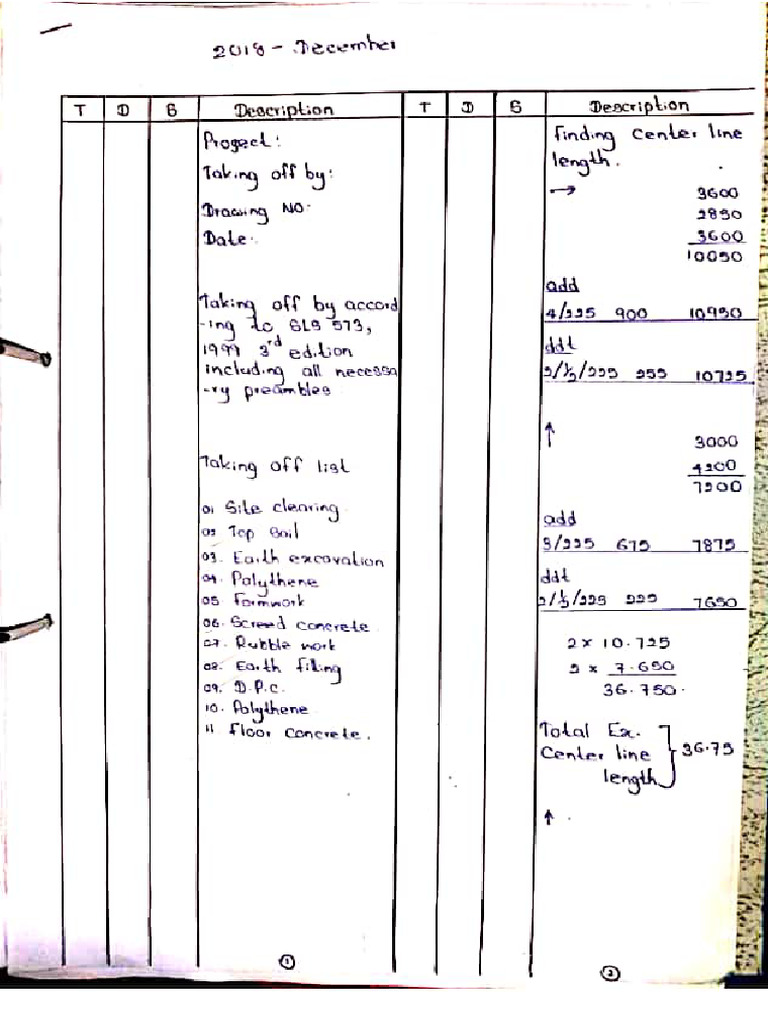 2018 - December
T D S Description
Progect:
Taking off by:
Drawing NO:
Date:
Taking off by accord
-ing to SLS 573,
1999 3rd edition
including all necessa
-ry preambles
Taking off list
01 Site clearing
02 Top Soil
03. Earth excavation
04. Polythene
05 Formwork
06. Screed concrete
07. Rubble work
08. Earth filling
09. D.P.C.
10. Polythene
11 Floor concrete.
1
T D S Description
Finding center line
length.
→ 3600
2850
3600
10050
add
4/225 900 10950
ddt
2/½/225 225 10725
↑ 3000
4200
7200
add
3/225 675 7875
ddt
2/½/225 225 7650
2 x 10.725
2 x 7.650
36.750.
Total Ex.
Center line
length } 36.75
↑
2